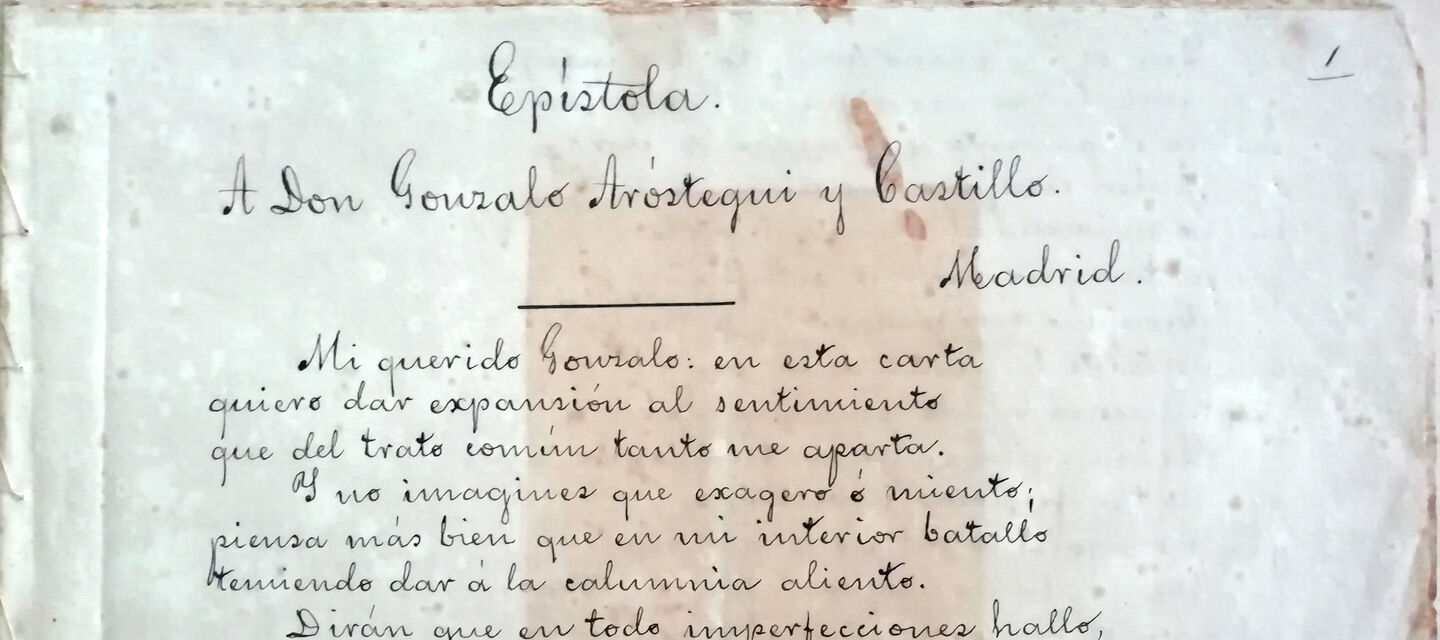 1
Epístola.
A Don Gonzalo Aróstegui y Castillo.
Madrid.
Mi querido Gonzalo: en esta carta
quiero dar expansión al sentimiento
que del trato común tanto me aparta.
Y no imagines que exagero ó miento;
piensa más bien que en mi interior batallo
temiendo dar á la calumnia aliento.
Dirán que en todo imperfecciones hallo,